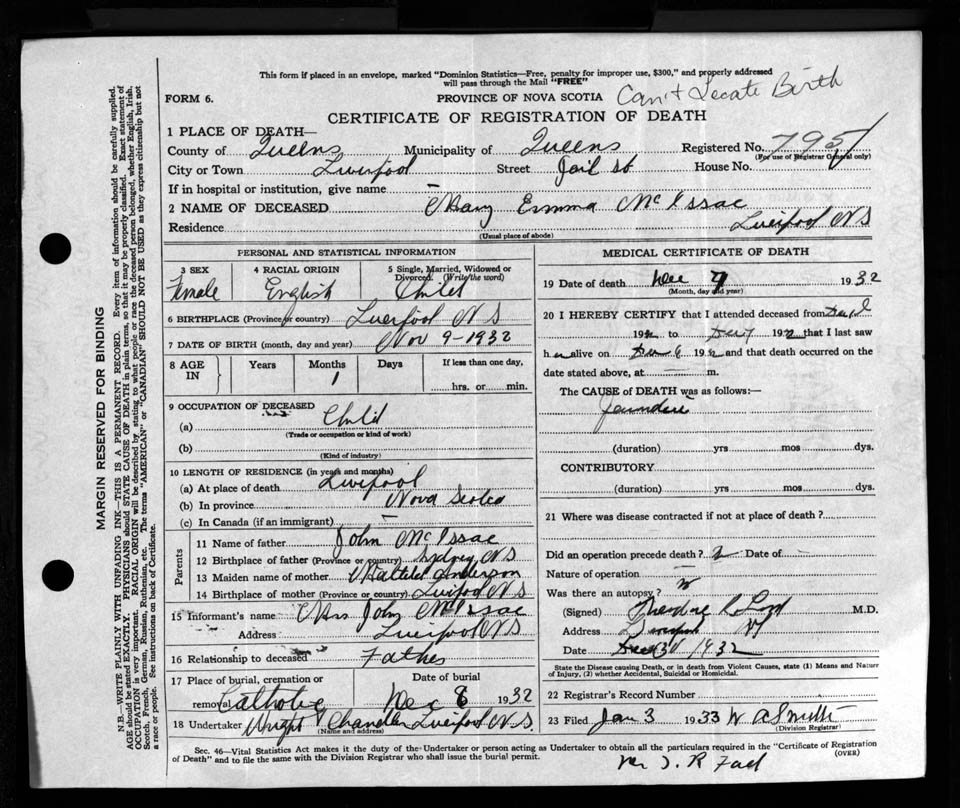 This form if placed in an envelope, marked "Dominion Statistics—Free, penalty for improper use, $300," and properly addressed
will pass through the Mail "FREE"
FORM 6.
PROVINCE OF NOVA SCOTIA
Can't Locate Birth
CERTIFICATE OF REGISTRATION OF DEATH
1 PLACE OF DEATH—
County of Queens Municipality of Queens Registered No. 795
(For use of Registrar General only)
City or Town Liverpool Street Jail st House No.
If in hospital or institution, give name —
2 NAME OF DECEASED Mary Emma McIssac
Residence Liverpool NS
(Usual place of abode)
PERSONAL AND STATISTICAL INFORMATION
3 SEX 4 RACIAL ORIGIN 5 Single, Married, Widowed or
Divorced. (Write the word)
Female English Child
6 BIRTHPLACE (Province or country) Liverpool NS
7 DATE OF BIRTH (month, day and year) Nov 9-1932
8 AGE IN Years Months Days If less than one day,
1 hrs. or min.
9 OCCUPATION OF DECEASED
(a) Child
(Trade or occupation or kind of work)
(b)
(Kind of industry)
10 LENGTH OF RESIDENCE (in years and months)
(a) At place of death Liverpool
(b) In province Nova Scotia
(c) In Canada (if an immigrant) —
Parents
11 Name of father John McIssac
12 Birthplace of father (Province or country) Sydney NS
13 Maiden name of mother Anderson
14 Birthplace of mother (Province or country) Liverpool NS
15 Informant's name Mrs John McIssac
Address Liverpool NS
16 Relationship to deceased Father
17 Place of burial, cremation or Date of burial
removal Catholic Dec 8 1932
18 Undertaker Wright Chandler Liverpool N.S.
(Name and address)
MEDICAL CERTIFICATE OF DEATH
19 Date of death Dec 7 1932
(Month, day and year)
20 I HEREBY CERTIFY that I attended deceased from Dec
193 to Dec 7 193 that I last saw
her alive on Dec 6 193 and that death occurred on the
date stated above, at — m.
The CAUSE of DEATH was as follows:—
Jaundice
(duration) yrs mos dys.
CONTRIBUTORY
(duration) yrs mos dys.
21 Where was disease contracted if not at place of death?
Did an operation precede death? Date of —
Nature of operation —
Was there an autopsy?
(Signed) Theodore R Ford M.D.
Address Liverpool NS
Date Dec 31/1932
State the Disease causing Death, or in death from Violent Causes, state (1) Means and Nature
of Injury, (2) whether Accidental, Suicidal or Homicidal.
22 Registrar's Record Number
23 Filed Jan 3 1933 W A Smith
(Division Registrar)
Sec. 46—Vital Statistics Act makes it the duty of the Undertaker or person acting as Undertaker to obtain all the particulars required in the "Certificate of Registration
of Death" and to file the same with the Division Registrar who shall issue the burial permit.
(OVER)
MARGIN RESERVED FOR BINDING
N.B.—WRITE PLAINLY WITH UNFADING INK—THIS IS A PERMANENT RECORD. Every item of information should be carefully supplied.
AGE should be stated EXACTLY. PHYSICIANS should STATE CAUSE OF DEATH in plain terms, so that it may be properly classified. Exact statement of
OCCUPATION is very important. RACIAL ORIGIN will be described by stating to what people or race the deceased person belonged, whether English, Irish,
Scotch, French, German, Russian, Ruthenian, etc. The terms "AMERICAN" or "CANADIAN" SHOULD NOT BE USED as they express citizenship but not
a race or people. See instructions on back of Certificate.